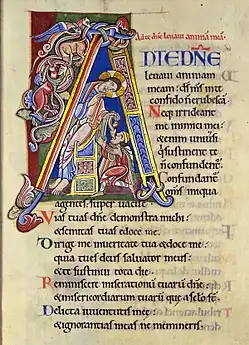 Ad te dñe leuaui animā meā.
AD TE DÑE
leuaui animam
meam: ds̄ ms̄ in te
confido n̄ erubescā.
Neqꝫ irrideant
me inimici mei:
etenim uniūsi
q̄ sustinent te
n̄ confundent̄.
Confundant̄
om̄s iniqua
agentes: super uacue.
Vias tuas dñe demonstra michi:
& semitas tuas edoce me.
Dirige me in ueritate tua & doce me:
quia tu es deus saluator meus:
& te sustinui tota die.
Reminiscere miserationū tuarū dñe:
& misericordiarum tuarū que a sclo st̄.
Delicta iuuentutis mee:
& ignorantias meas ne memineris.